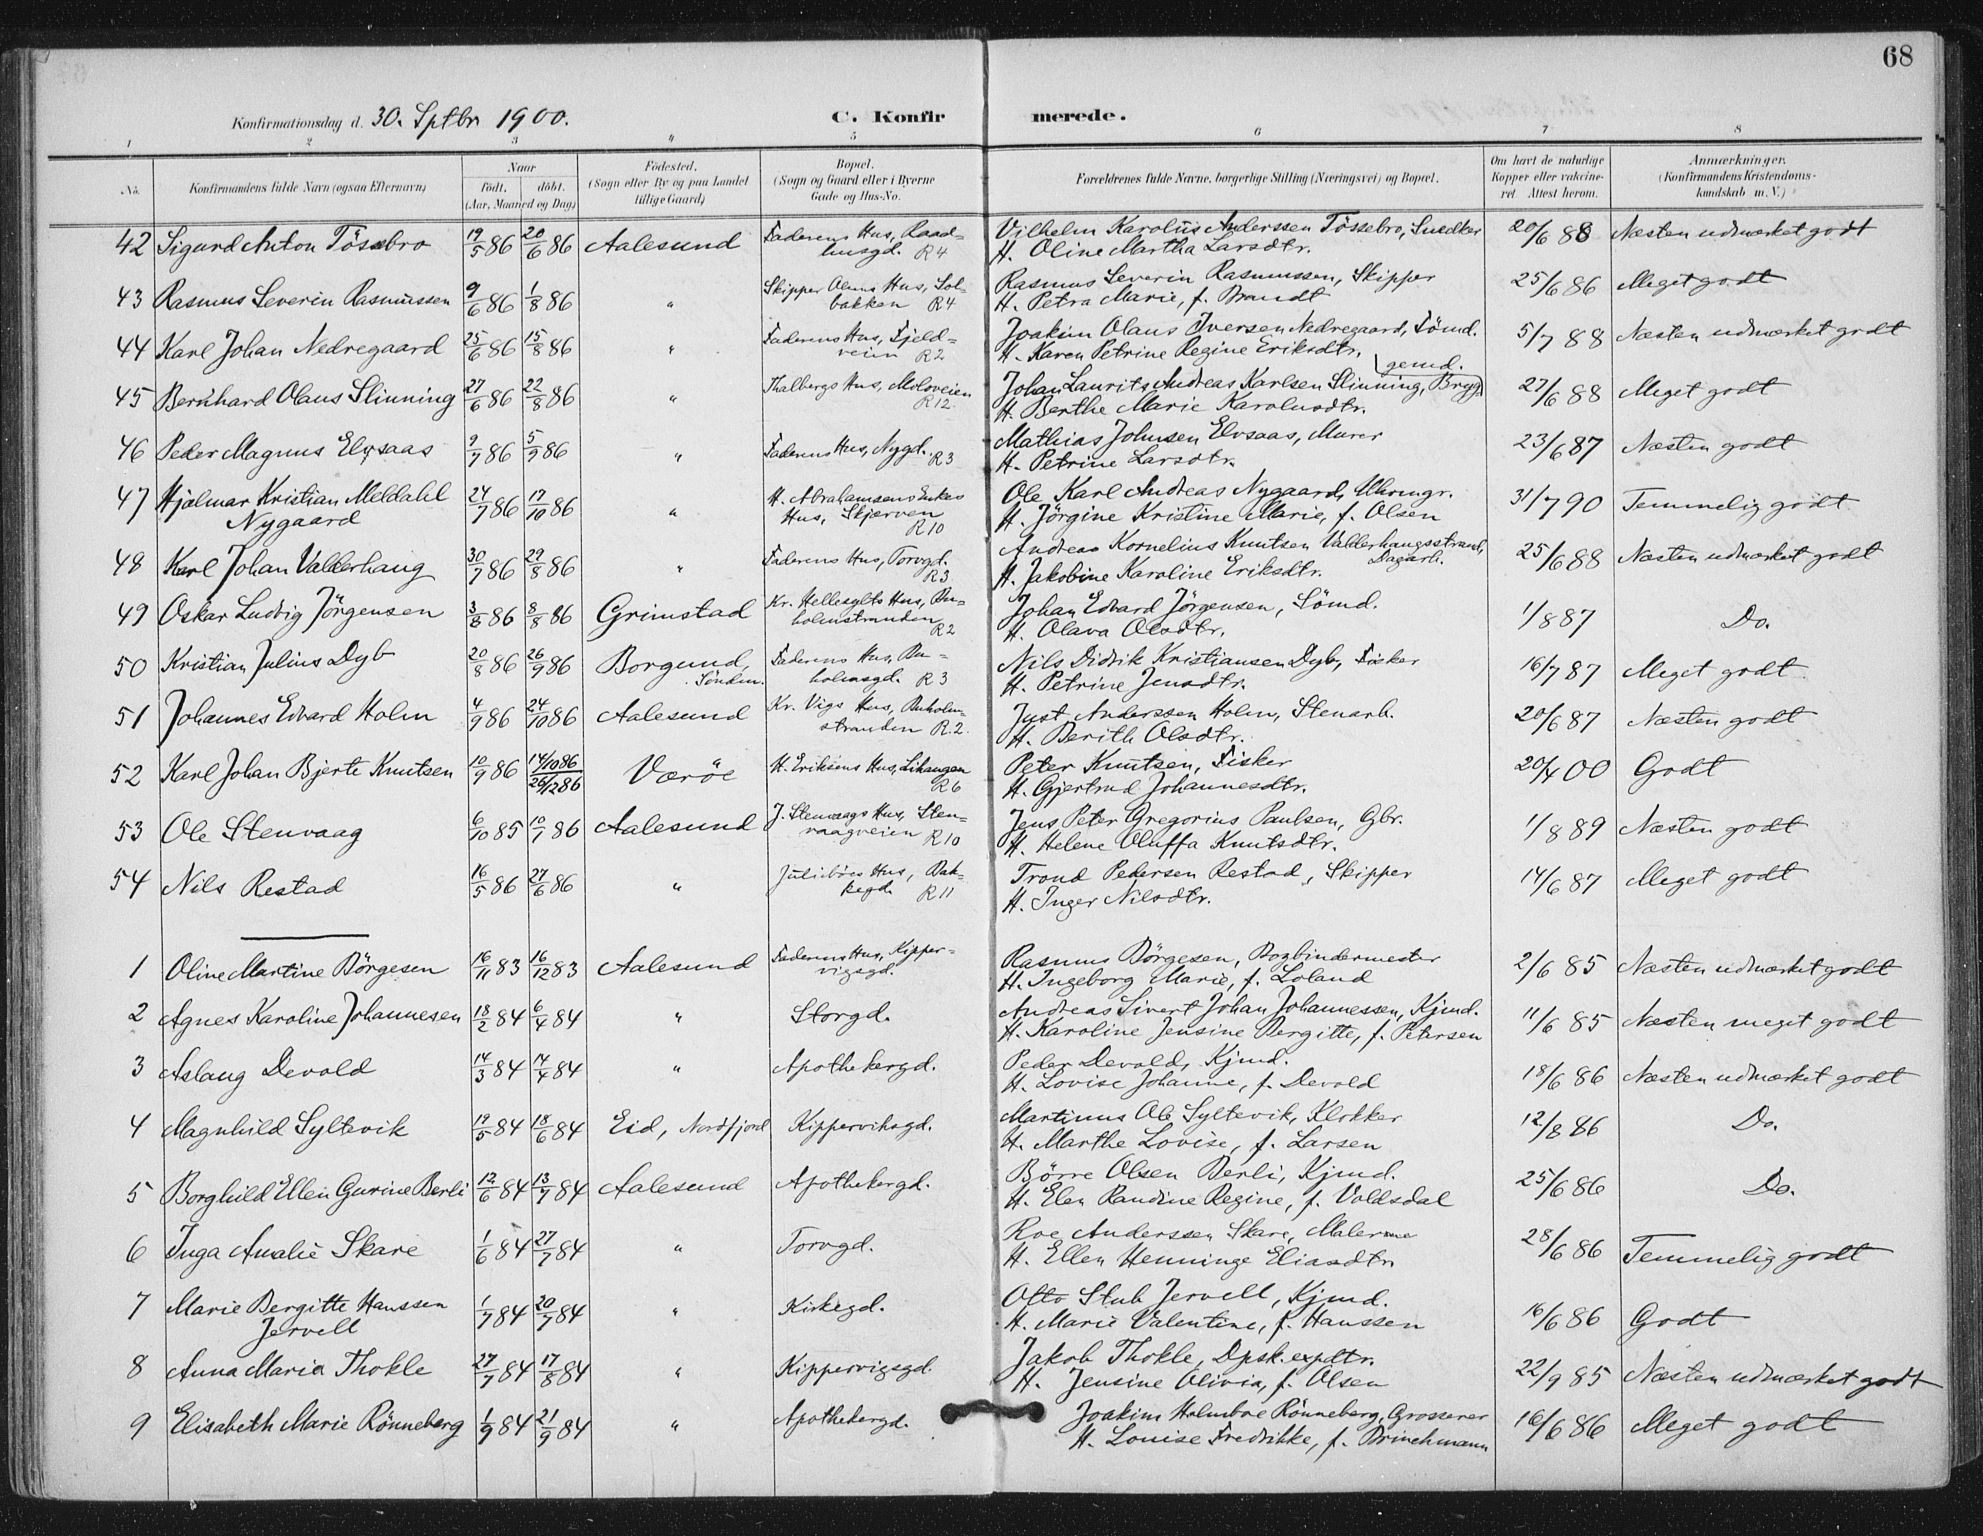 68
Konfirmationsdag d. 30. Sptbr 1900. C. Konfirmerede.
1 2 3 4 5 6 7 8
No. Konfirmandens fulde Navn (ogsaa Efternavn) Naar født, døbt. (Aar, Maaned og Dag) Fødested. (Sogn eller By og paa Landet tillige Gaard) Bopæl. (Sogn og Gaard eller i Byerne Gade og Hus-No. Forældrenes fulde Navne, borgerlige Stilling (Næringsvei) og Bopæl. Om havt de naturlige Kopper eller vakcineret. Attest herom. Anmærkninger. (Konfirmandens Kristendomskundskab m. V.)
42 Sigurd Anton Tösebro 19/5 86 20/6 86 Aalesund Faderens Hus, Raadhusgd. R4 Vilhelm Karolus Anderssen Tössebro, Snedker 20/6 88 Næsten udmærket godt
H. Oline Martha Larsdtr.
43 Rasmus Severin Rasmussen 9/6 86 1/8 86 " Skipper Olsens Hus, Solbakken R4 Rasmus Severin Rasmussen, Skipper 25/6 86 Meget godt
H. Petra Marie, f. Brandt
44 Karl Johan Nedregaard 25/6 86 15/8 86 " Faderens Hus, Fjeldveien R2 Joakim Olaus Iversen Nedregaard, Sømd. 5/7 88 Næsten udmærket godt
H. Karen Petrine Regine Eriksdtr.
45 Bernhard Olaus Slinning 27/6 86 22/8 86 " Thalbergs Hus, Moloveien R12 Johan Laurits Andreas Karlsen Slinning, Bryg gemd. 27/6 88 Meget godt
H. Berthe Marie Karolusdtr.
46 Peder Magnus Elvsaas 9/7 86 5/9 86 " Faderens Hus, Nygd. R3 Mathias Johnsen Elvsaas, Murer 23/6 87 Næsten godt
H. Petrine Larsdtr.
47 Hjalmar Kristian Meldahl Nygaard 24/7 86 17/10 86 " H. Abrahamsens Enkes Hus, Skjærven R10 Ole Karl Andreas Nygaard, Uhrmgr. 31/7 90 Temmelig godt
H. Jörgine Kristine Marie, f. Olsen
48 Karl Johan Valderhaug 30/7 86 29/8 86 " Faderens Hus, Torvgd. R3 Andreas Kornelius Knutsen Valderhaugsstrand, Dagarb. 25/6 88 Næsten udmærket godt
H. Jakobine Karoline Eriksdtr.
49 Oskar Ludvig Jörgensen 3/8 86 8/8 86 Grimstad Kr. Hellesylts Hus, Buholmstranden R2 Johan Edvard Jörgensen, Sömd. 1/8 87 Do.
H. Olava Olsdtr.
50 Kristian Julius Dyb 20/8 86 26/9 86 Borgund, Söndm. Faderens Hus, Buholmsgd. R3 Nils Didrik Kristiansen Dyb, Fisker 16/7 87 Meget godt
H. Petrine Jensdtr.
51 Johannes Edvard Holm 4/9 86 24/10 86 Aalesund Kr. Vigs Hus, Buholmstranden R.2. Just Anderssen Holm, Stenarb. 20/6 87 Næsten godt
H. Berith Olsdtr.
52 Karl Johan Bjerte Knutsen 10/9 86 14/10 86 26/12 86 Værøe H. Eriksens Hus, Lihaugen R6 Peter Knutsen, Fisker 20/4 00 Godt
H. Gjertrud Johannesdtr.
53 Ole Stenvaag 6/10 85 10/1 86 Aalesund J. Stenvaags Hus, Stenvaagveien R10 Jens Peter Gregorius Paulsen, Gbr. 1/8 89 Næsten godt
H. Helene Oluffa Knutsdtr.
54 Nils Restad 16/5 86 27/6 86 " Hus, Bakkegd. R11 Trond Pedersen Restad, Skipper 14/6 87 Meget godt
H. Inger Nilsdtr.
1 Oline Martine Börgesen 16/11 83 16/12 83 Aalesund Faderens Hus, Kippervigsgd. Rasmus Börgesen, Bogbindermester 2/6 85 Næsten udmærket godt
H. Ingeborg Marie, f. Loland
2 Agnes Karoline Johannesen 18/2 84 6/4 84 " Storgd. Andreas Sivert Johan Johannessen, Kjmd. 11/6 85 Næsten meget godt
H. Karoline Jensine Bergitte, f. Petersen
3 Aslaug Devold 14/3 84 14/4 84 " Apothekergd. Peder Devold, Kjmd. 18/6 86 Næsten udmærket godt
H. Lovise Johanne, f. Devold
4 Magnhild Syltevik 19/5 84 18/6 84 Eid, Nordfjord Kippervikgd. Martinus Ole Syltevik, Klokker 12/8 86 Do.
H. Marthe Lovise, f. Larsen
5 Borghild Ellen Gurine Berli 12/6 84 13/7 84 Aalesund Apothekergd. Börre Olsen Berli, Kjmd. 25/6 86 Do.
H. Elen Randine Regine, f. Voldsdal
6 Inga Amalie Skare 1/6 84 27/7 84 " Torvgd. Roe Anderssen Skare, Malerme 28/6 86 Temmelig godt
H. Ellen Henninge Eliasdtr
7 Marie Bergitte Hanssen Jervell 1/7 84 20/7 84 " Kirkegd. Otto Stub Jervell, Kjmd. 16/6 86 Godt
H. Marie Valentine, f. Hanssen
8 Anna Maria Thokle 27/7 84 17/8 84 " Kippervigsgd. Jakob Thokle, Dpsk.expdtr. 22/9 85 Næsten udmærket godt
H. Jensine Olivia, f. Olsen
9 Elisabeth Marie Rönneberg 1/9 84 21/9 84 " Apothekergd. Joakim Holmboe Rönneberg, Grosserer 16/6 86 Meget godt
H. Louise Fredrikke, f. Brinchmann